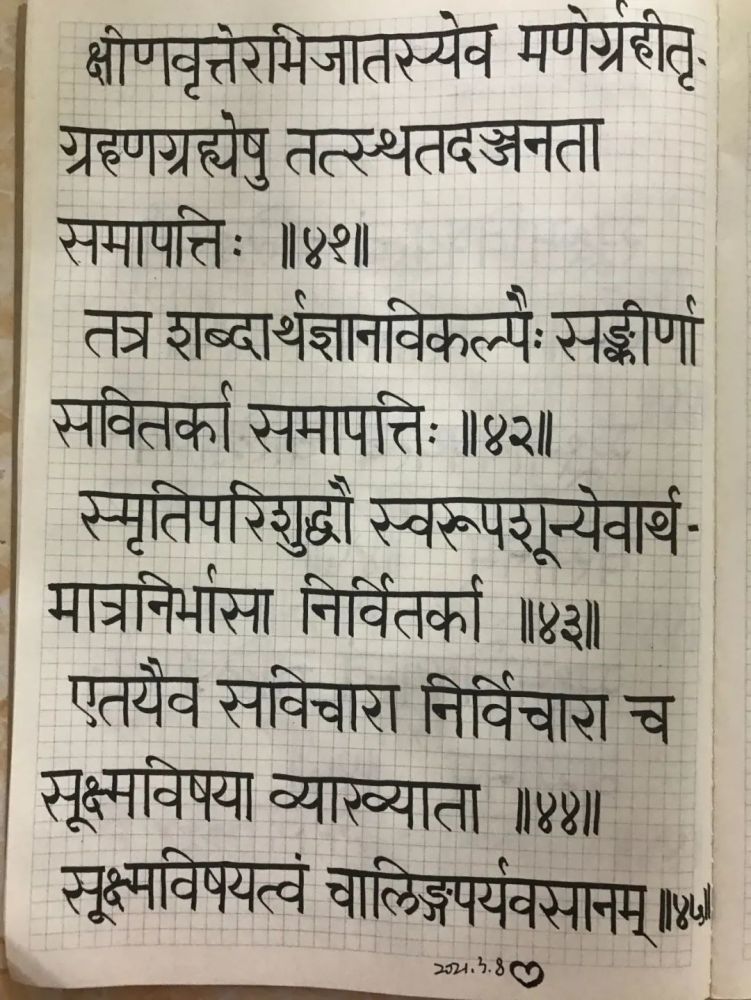 क्षीणवृत्तेरभिजातस्येव मणेर्ग्रहीतृ-
ग्रहणग्रह्येषु तत्स्थतदञ्जनता
समापत्तिः ॥४१॥
तत्र शब्दार्थज्ञानविकल्पैः सङ्कीर्णा
सवितर्का समापत्तिः ॥४२॥
स्मृतिपरिशुद्धौ स्वरूपशून्येवार्थ-
मात्रनिर्भासा निर्वितर्का ॥४३॥
एतयैव सविचारा निर्विचारा च
सूक्ष्मविषया व्याख्याता ॥४४॥
सूक्ष्मविषयत्वं चालिङ्गपर्यवसानम् ॥४५॥
2021.3.8♡